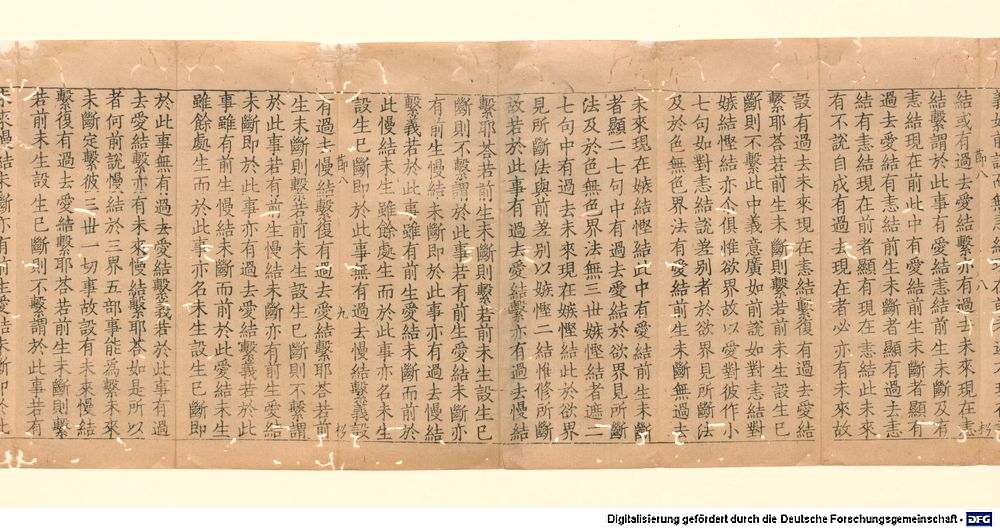 結或有過去愛結繫亦有過去未來現在恚
結結繫謂於此事有愛結恚結前生未斷及有
恚結現在前此中有愛結前生未斷者顯有
過去愛結有恚結前生未斷者顯有過去恚
結有恚結現在前者顯有現在恚結此未來
有不說自成有過去現在者必亦有未來故
設有過去未來現在恚結繫復有過去愛結
繫耶答若前生未斷則繫若前未生設生已
斷則不繫此中義意廣如前說如對恚結對
嫉結慳結亦介俱惟欲界故以愛對彼作小
七句如對恚結說差別者於欲界見所斷法
及於色無色界法有愛結前生未斷無過去
未來現在嫉結慳結此中有愛結前生未斷
者顯二七句中有過去愛結於欲界見所斷
法及於色無色界法無三世嫉慳結者遮二
七句中有過去未來現在嫉慳結此於欲界
見所斷法與前差別以嫉慳二結惟修所斷
故若於此事有過去愛結繫亦有過去慢結
繫耶答若前生未斷則繫若前未生設生已
斷則不繫謂於此事若有前生愛結未斷亦
有前生慢結未斷即於此事亦有過去慢結
繫義若於此事雖有前生愛結未斷而前於
此慢結未生雖餘處生而於此事亦名未生
設生已斷即於此事無有過去慢結繫義設
節八
九
有過去慢結繫復有過去愛結繫耶答若前
生未斷則繫若前未生設生已斷則不繫謂
於此事若有前生慢結未斷亦有前生愛結
未斷即於此事亦有過去愛結繫義若於此
事雖有前生慢結未斷而前於此愛結未生
雖餘處生而於此事亦名未生設生已斷即
於此事無有過去愛結繫義若於此事有過
去愛結繫亦有未來慢結繫耶答如是所以
者何前說慢結於三界五部事能為繫未來
未斷定繫彼三世一切事故設有未來慢結
繫復有過去愛結繫耶答若前生未斷則繫
若前未生設生已斷則不繫謂於此事若有
Digitalisierung gefördert durch die Deutsche Forschungsgemeinschaft - DFG